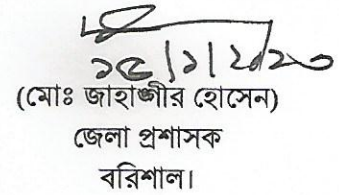 ১৫/১/২০২৩
(মোঃ জাহাঙ্গীর হোসেন)
জেলা প্রশাসক
বরিশাল।